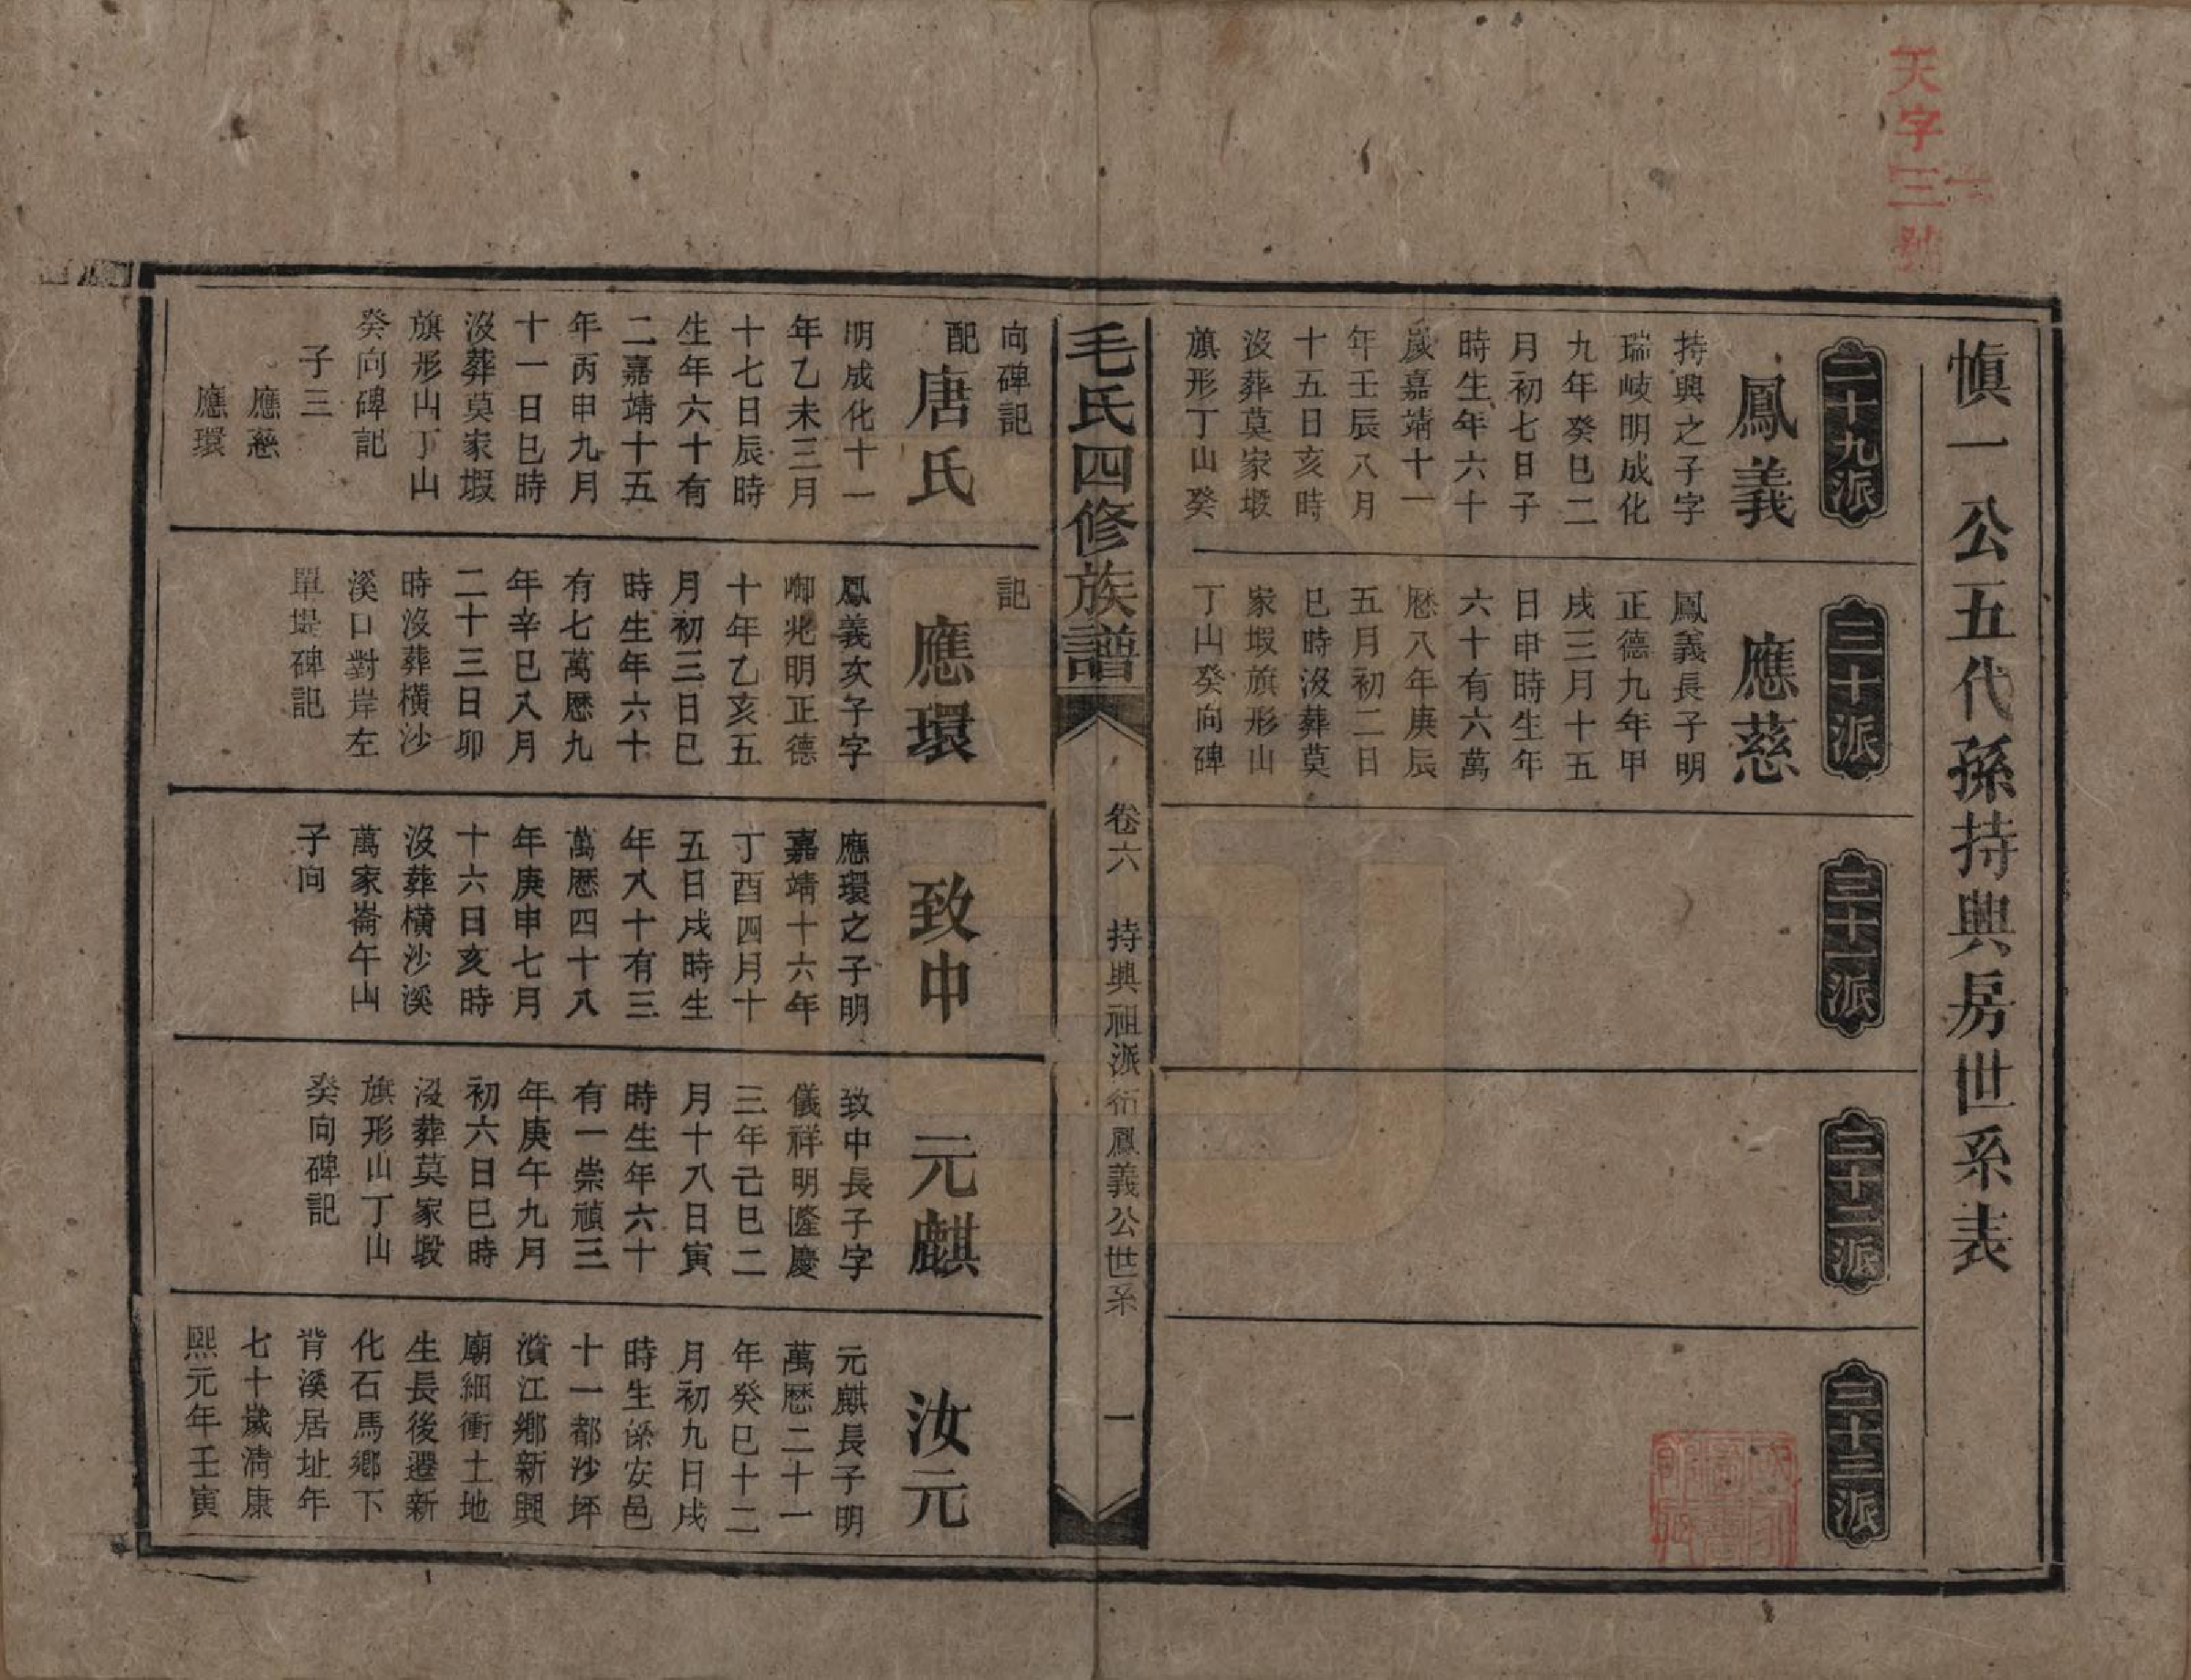 天字三號
愼一公五代孫持興房世系表
二十九派
鳳義
持興之子字
瑞岐明成化
九年癸巳二
月初七日子
時生年六十
歲嘉靖十一
年壬辰八月
十五日亥時
沒葬莫家塅
旗形丁山癸
三十派
應慈
鳳義長子明
正德九年甲
戌三月十五
日申時生年
六十有六萬
歷八年庚辰
五月初二日
巳時沒葬莫
家塅旗形山
丁山癸向碑
三十一派
三十二派
三十三派
毛氏四修族譜
卷六
持興祖派衍鳳義公世系
一
向碑記
配
唐氏
明成化十一
年乙未三月
十七日辰時
生年六十有
二嘉靖十五
年丙申九月
十一日巳時
沒葬莫家塅
旗形山丁山
癸向碑記
子三
應慈
應環
記
應環
鳳義次子字
卿兆明正德
十年乙亥五
月初三日巳
時生年六十
有七萬歷九
年辛巳八月
二十三日卯
時沒葬橫沙
溪口對岸左
單堤碑記
致中
應環之子明
嘉靖十六年
丁酉四月十
五日戌時生
年八十有三
萬歷四十八
年庚申七月
十六日亥時
沒葬橫沙溪
萬家崙午山
子向
元麒
致中長子字
儀祥明隆慶
三年己巳二
月十八日寅
時生年六十
有一崇禎三
年庚午九月
初六日巳時
沒葬莫家塅
旗形山丁山
癸向碑記
汝元
元麒長子明
萬歷二十一
年癸巳十二
月初九日戌
時生係安邑
十一都沙坪
濱江鄉新興
廟細衝土地
生長後遷新
化石馬鄉下
背溪居址年
七十歲淸康
熙元年壬寅